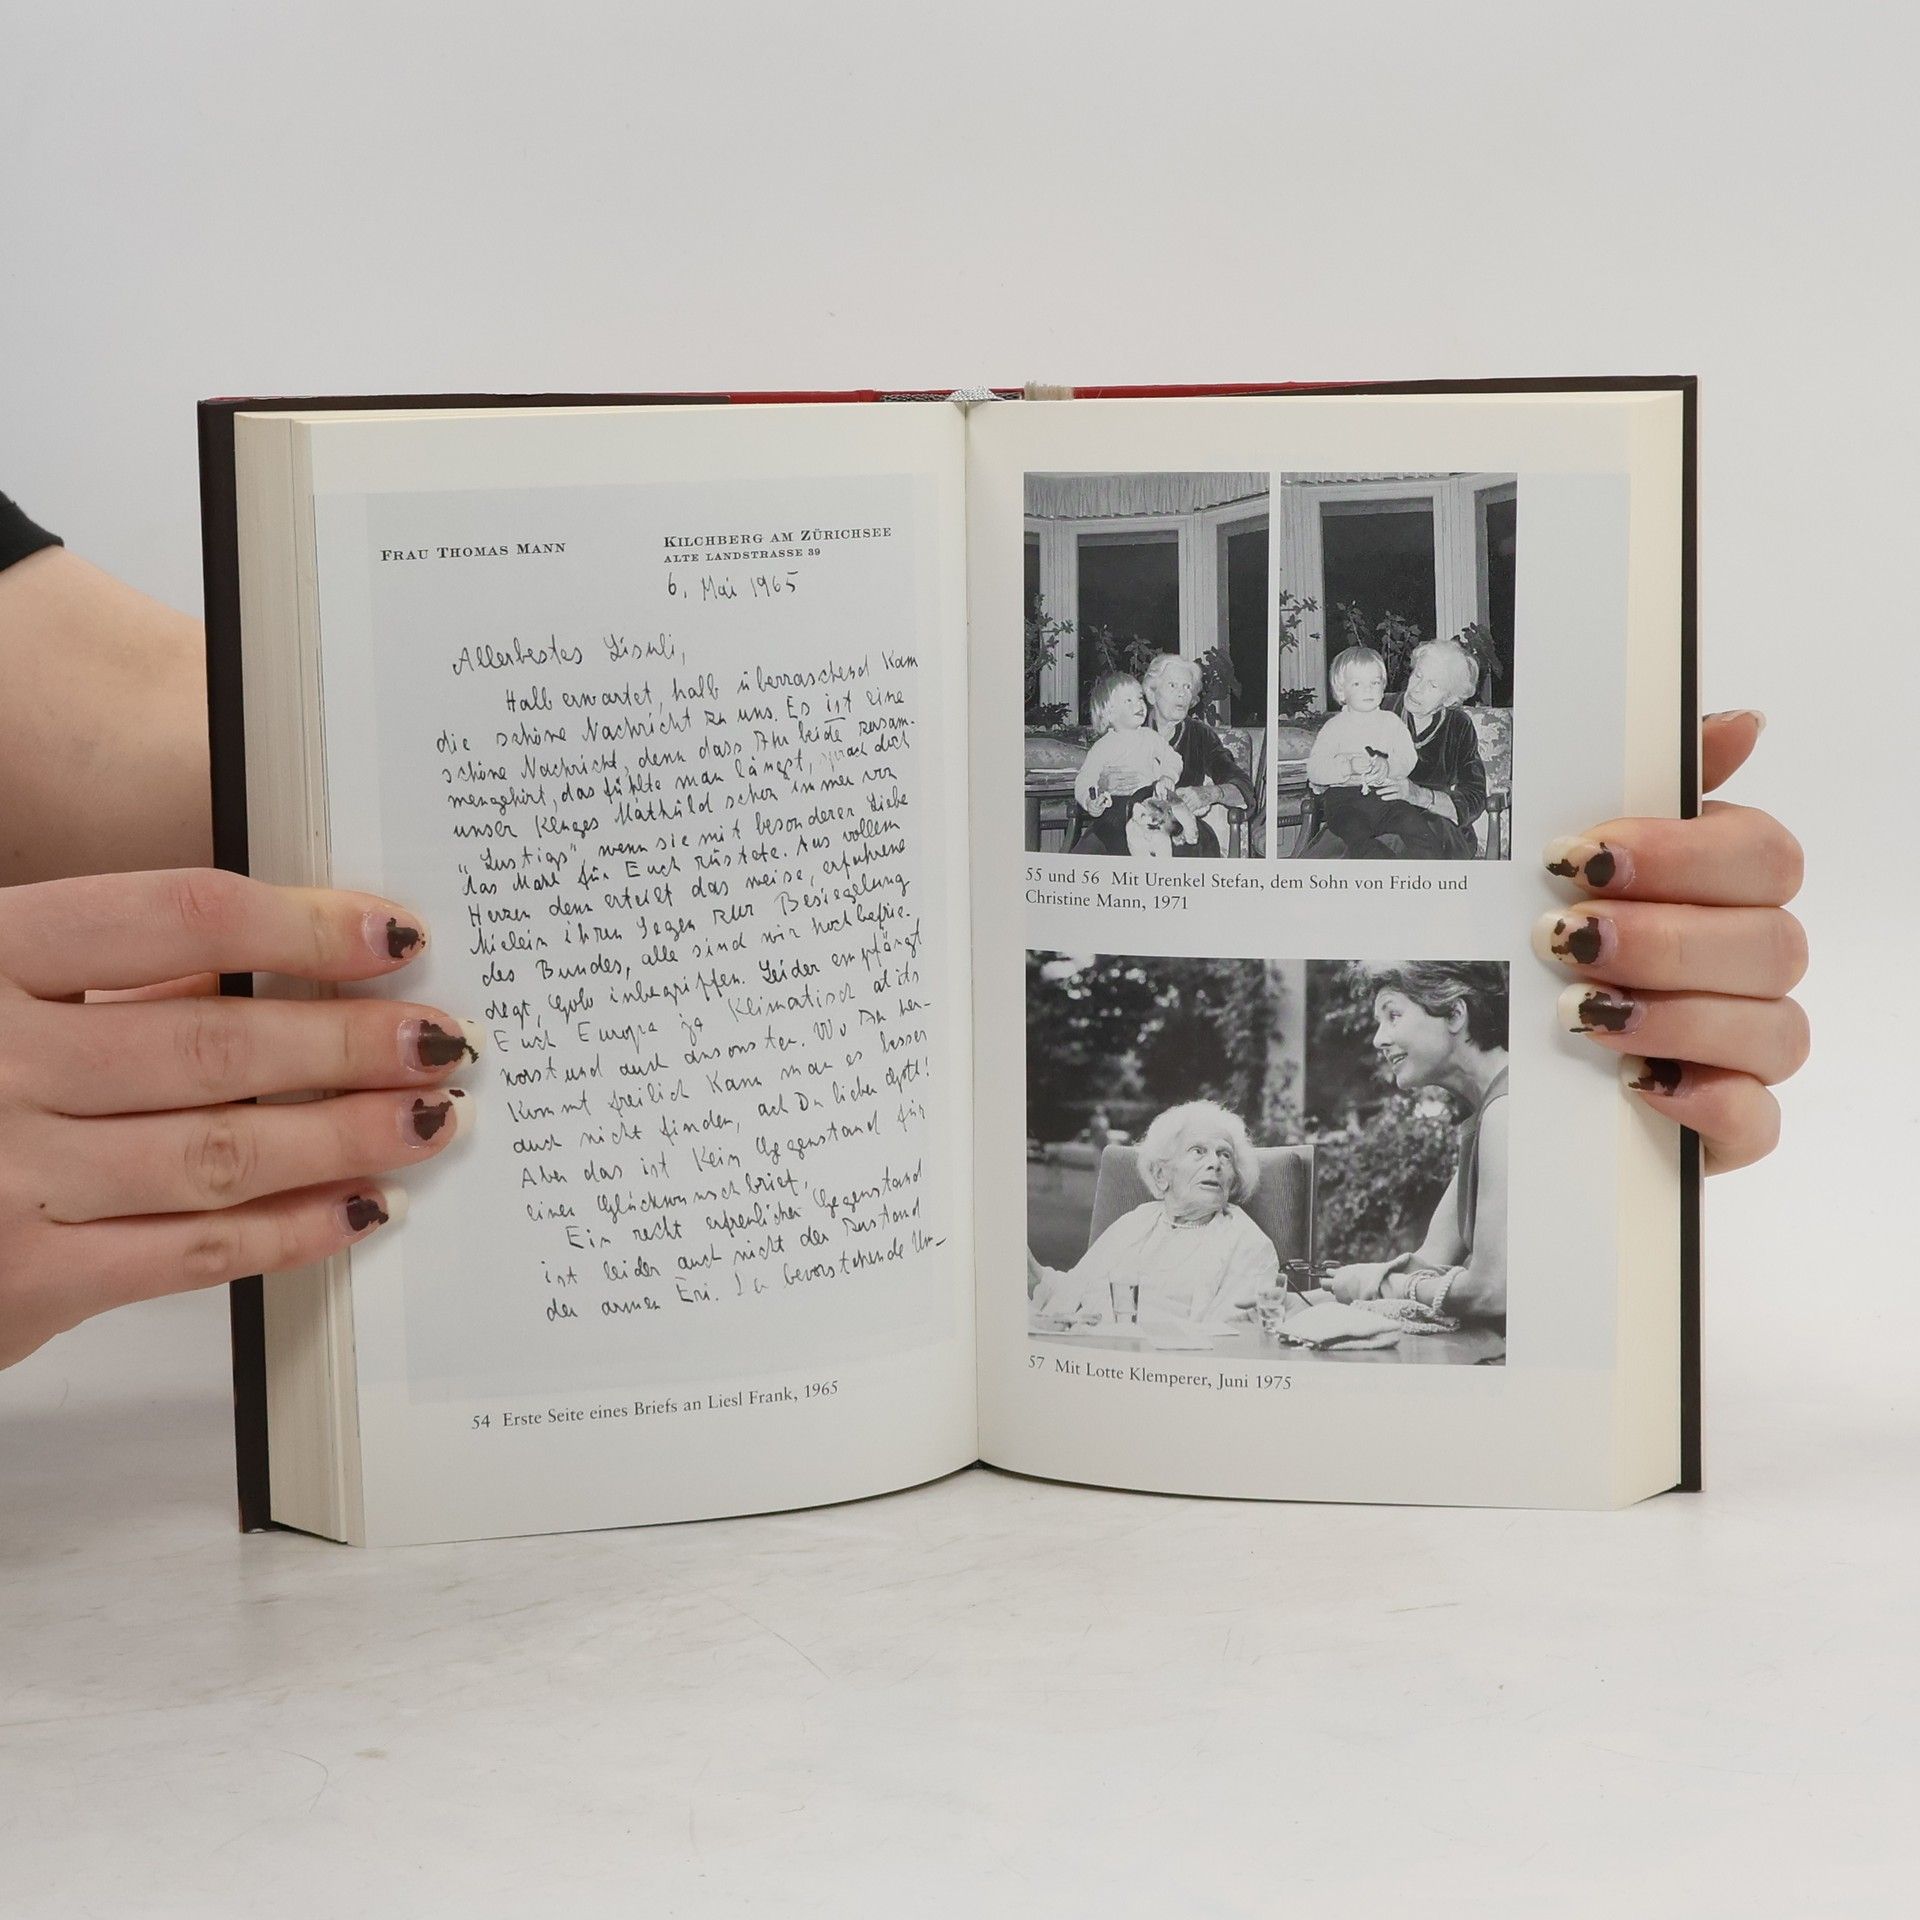 FRAU THOMAS MANN
KILCHBERG AM ZÜRICHSEE
ALTE LANDSTRASSE 39
6. Mai 1965
Allerbestes Lisuli,
Halb erwartet, halb überraschend kam
die schöne Nachricht zu uns. Es ist eine
schöne Nachricht, denn dass Ihr beide zusam-
mengehört, das fühlte man längst, sprach doch
unser kluges Mathild schon immer von
„Lustigs", wenn sie mit besonderer Liebe
das Mahl für Euch rüstete. Aus vollem
Herzen denn erteilt das weise, erfahrene
Mielein ihren Segen zur Besiegelung
des Bundes, alle sind wir hochbefrie-
digt, Golo inbegriffen. Leider empfängt
Euch Europa ja klimatisch
und auch ansonsten. Wo Ihr her-
kommt freilich kann man es besser
auch nicht finden, ach Du lieber Gott!
Aber das ist kein Gegenstand für
einen Glückwunschbrief.
Ein recht erfreulicher Gegenstand
ist leider auch nicht der Zustand
der armen Eri. bevorstehende Um-
54 Erste Seite eines Briefs an Liesl Frank, 1965
55 und 56 Mit Urenkel Stefan, dem Sohn von Frido und
Christine Mann, 1971
57 Mit Lotte Klemperer, Juni 1975